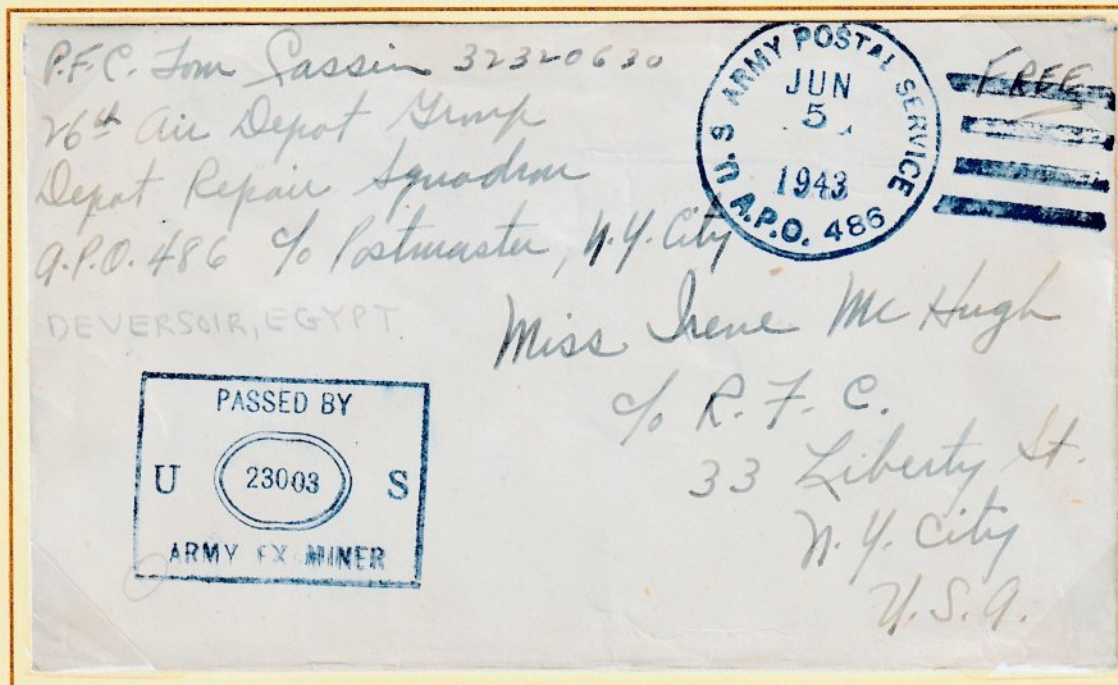 P.F.C. Tom Sassin 32320630
26th Air Depot Group
Depot Repair Squadron
A.P.O. 486 c/o Postmaster, N.Y. City
DEVERSOIR, EGYPT
U.S. ARMY POSTAL SERVICE
JUN
5
1943
A.P.O. 486
FREE
Miss Irene Mc Hugh
c/o R.F.C.
33 Liberty St.
N.Y. City
U.S.A.
PASSED BY
U 23003 S
ARMY EX MINER